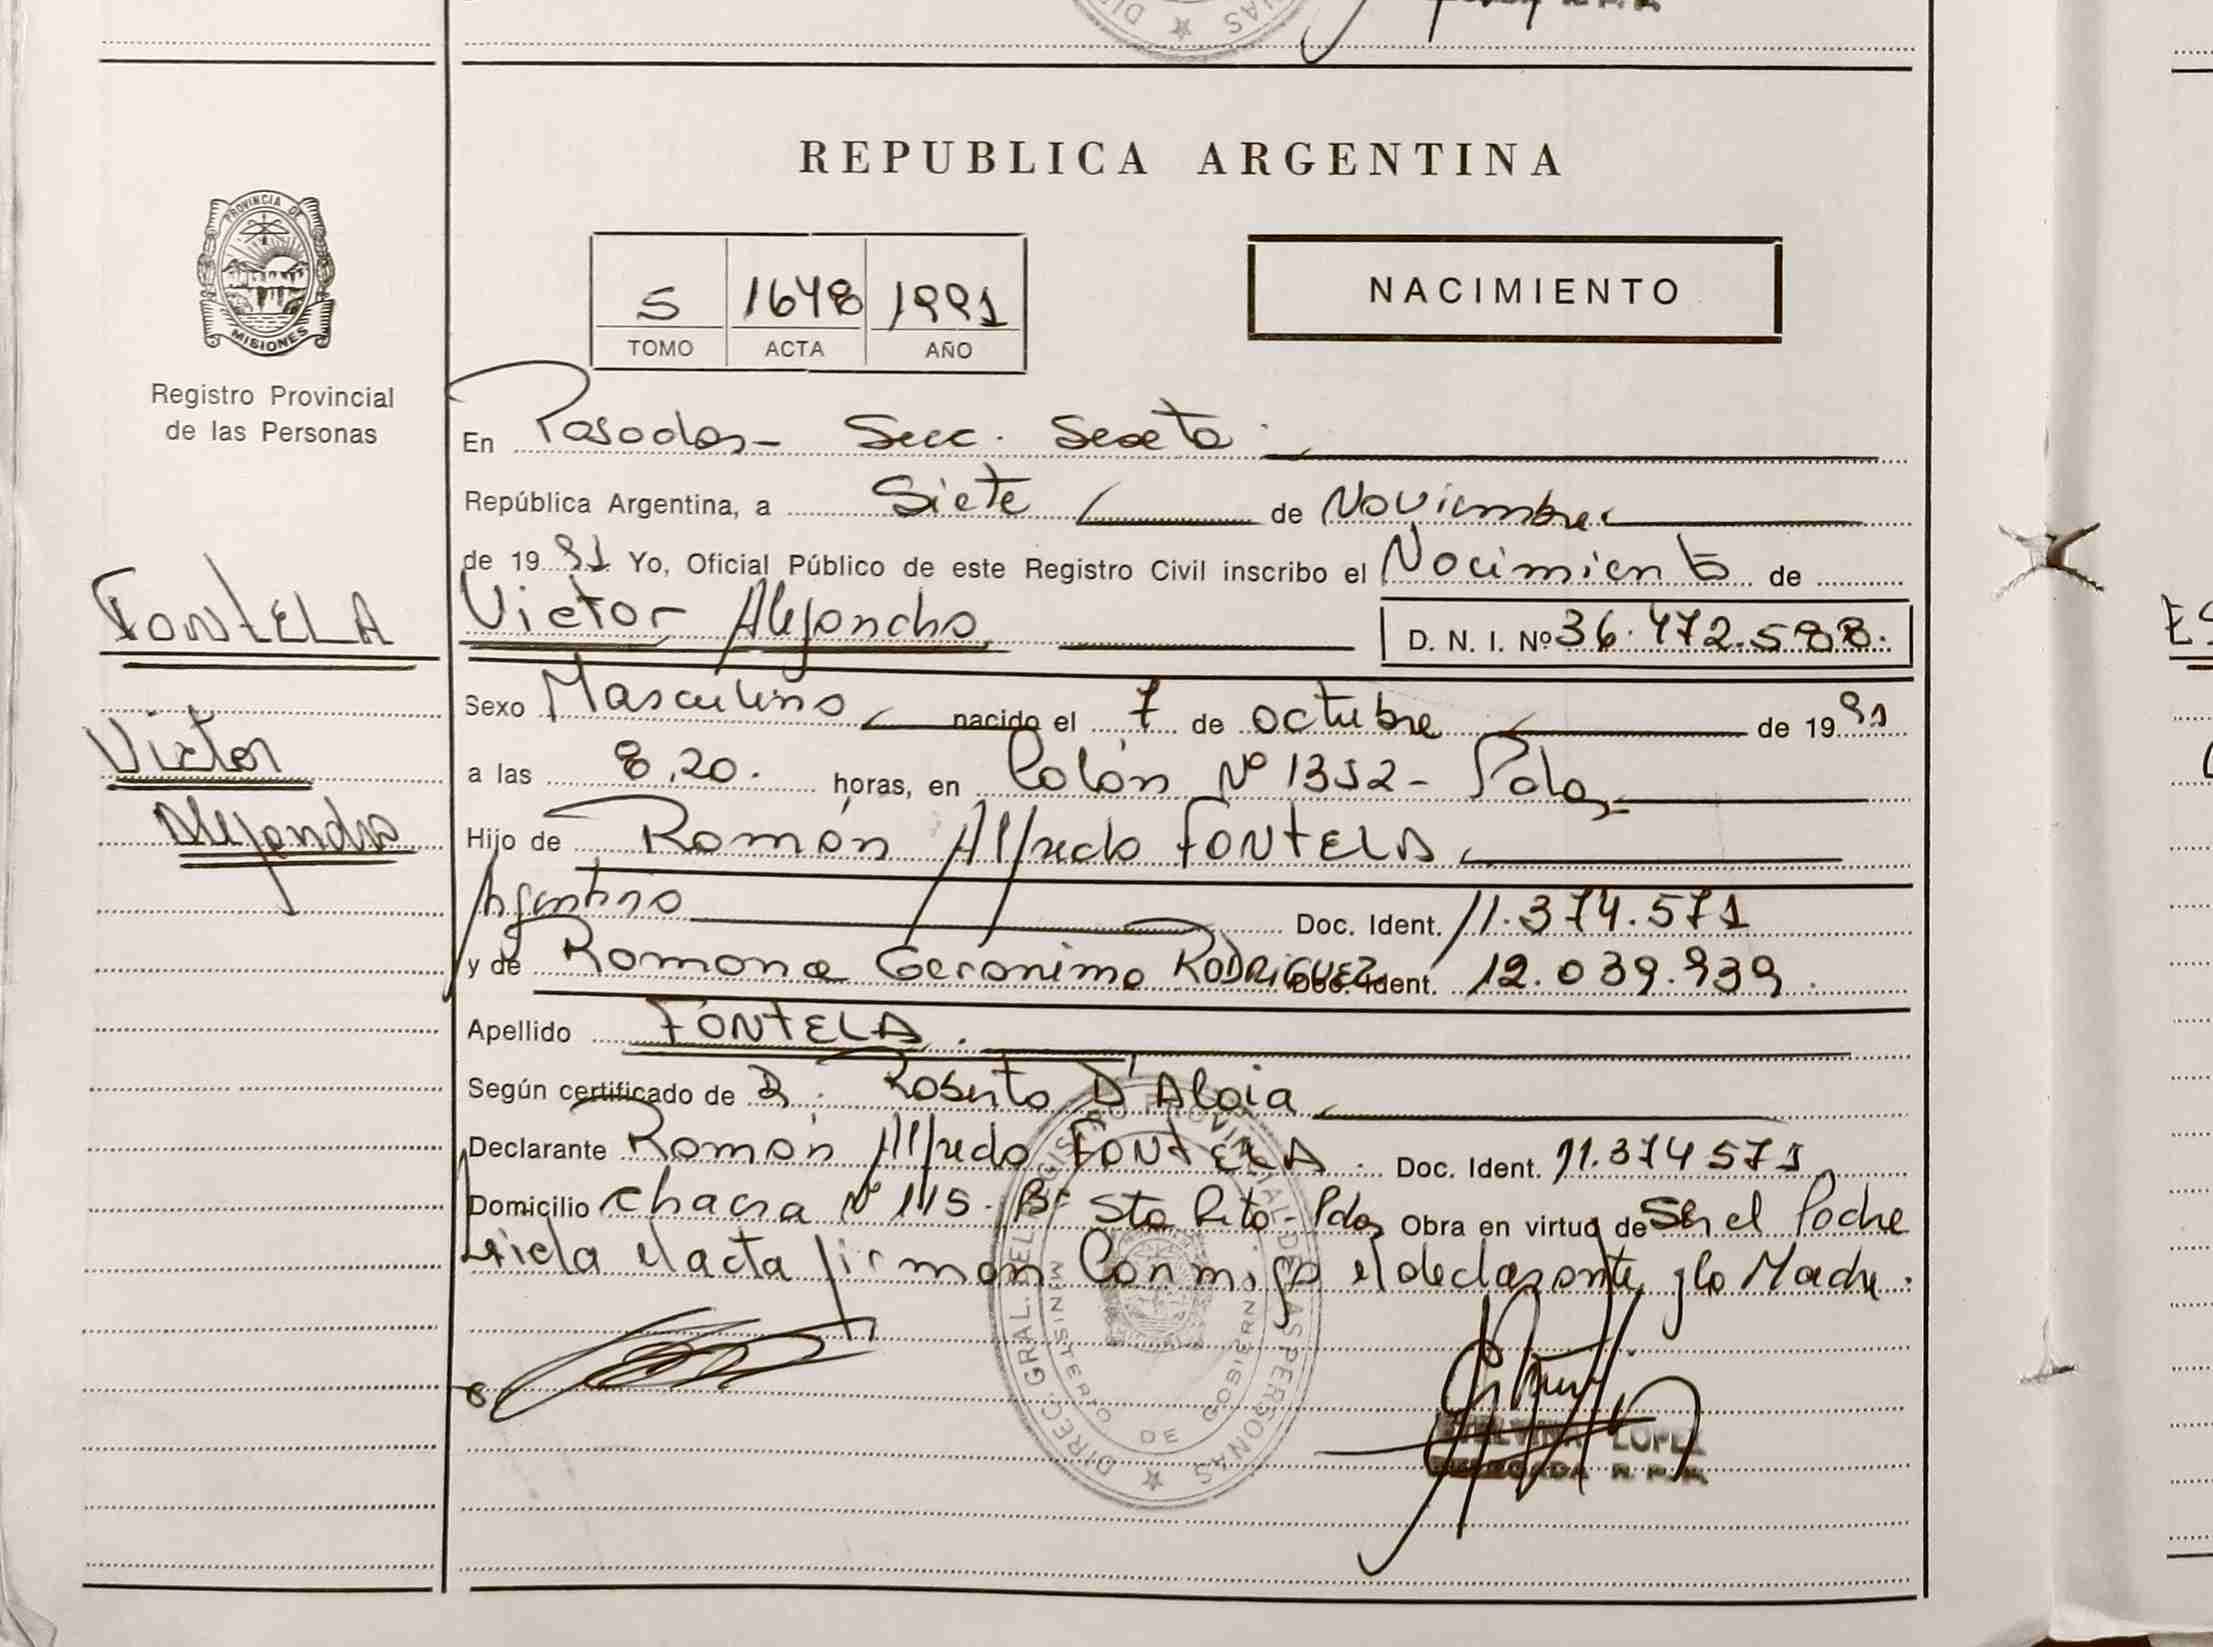 REPUBLICA ARGENTINA
PROVINCIA DE
MISIONES
Registro Provincial
de las Personas
5 1648 1991
TOMO ACTA AÑO
NACIMIENTO
En Posadas - Secc. Sexta
República Argentina, a Siete de Noviembre
de 1991 Yo, Oficial Público de este Registro Civil inscribo el Nacimiento de
FONTELA
Victor Alejandro D. N. I. Nº 36.472.588.
Sexo Masculino nacido el 7 de octubre de 1991
Victor
a las 8,20. horas, en Colón Nº 1352 - Pdas
Alejandro
Hijo de Ramón Alfredo FONTELA
Argentino Doc. Ident. 11.374.571
y de Ramona Geronima RODRIGUEZ Doc. Ident. 12.039.939.
Apellido FONTELA.
Según certificado de Dr. Roberto D'Aloia
Declarante Ramón Alfredo FONTELA. Doc. Ident. 11.374571
Domicilio chacra Nº 115. Bº Sta Rita - Pdas Obra en virtud de Ser el Padre
Leida el acta firman Conmigo el declarante y la Madre.
DIREC. GRAL. DEL REGISTRO PROVINCIAL DE LAS PERSONAS
MINISTERIO DE GOBIERNO
LOPEZ
DELEGADA R. P. P.